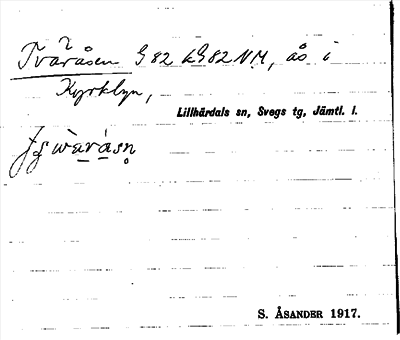 Tváråsen G 82 LG82 NM, ås i
Kyrkbyn,
Lillhärdals sn, Svegs tg, Jämtl. l.
S. ÅSANDER 1917.